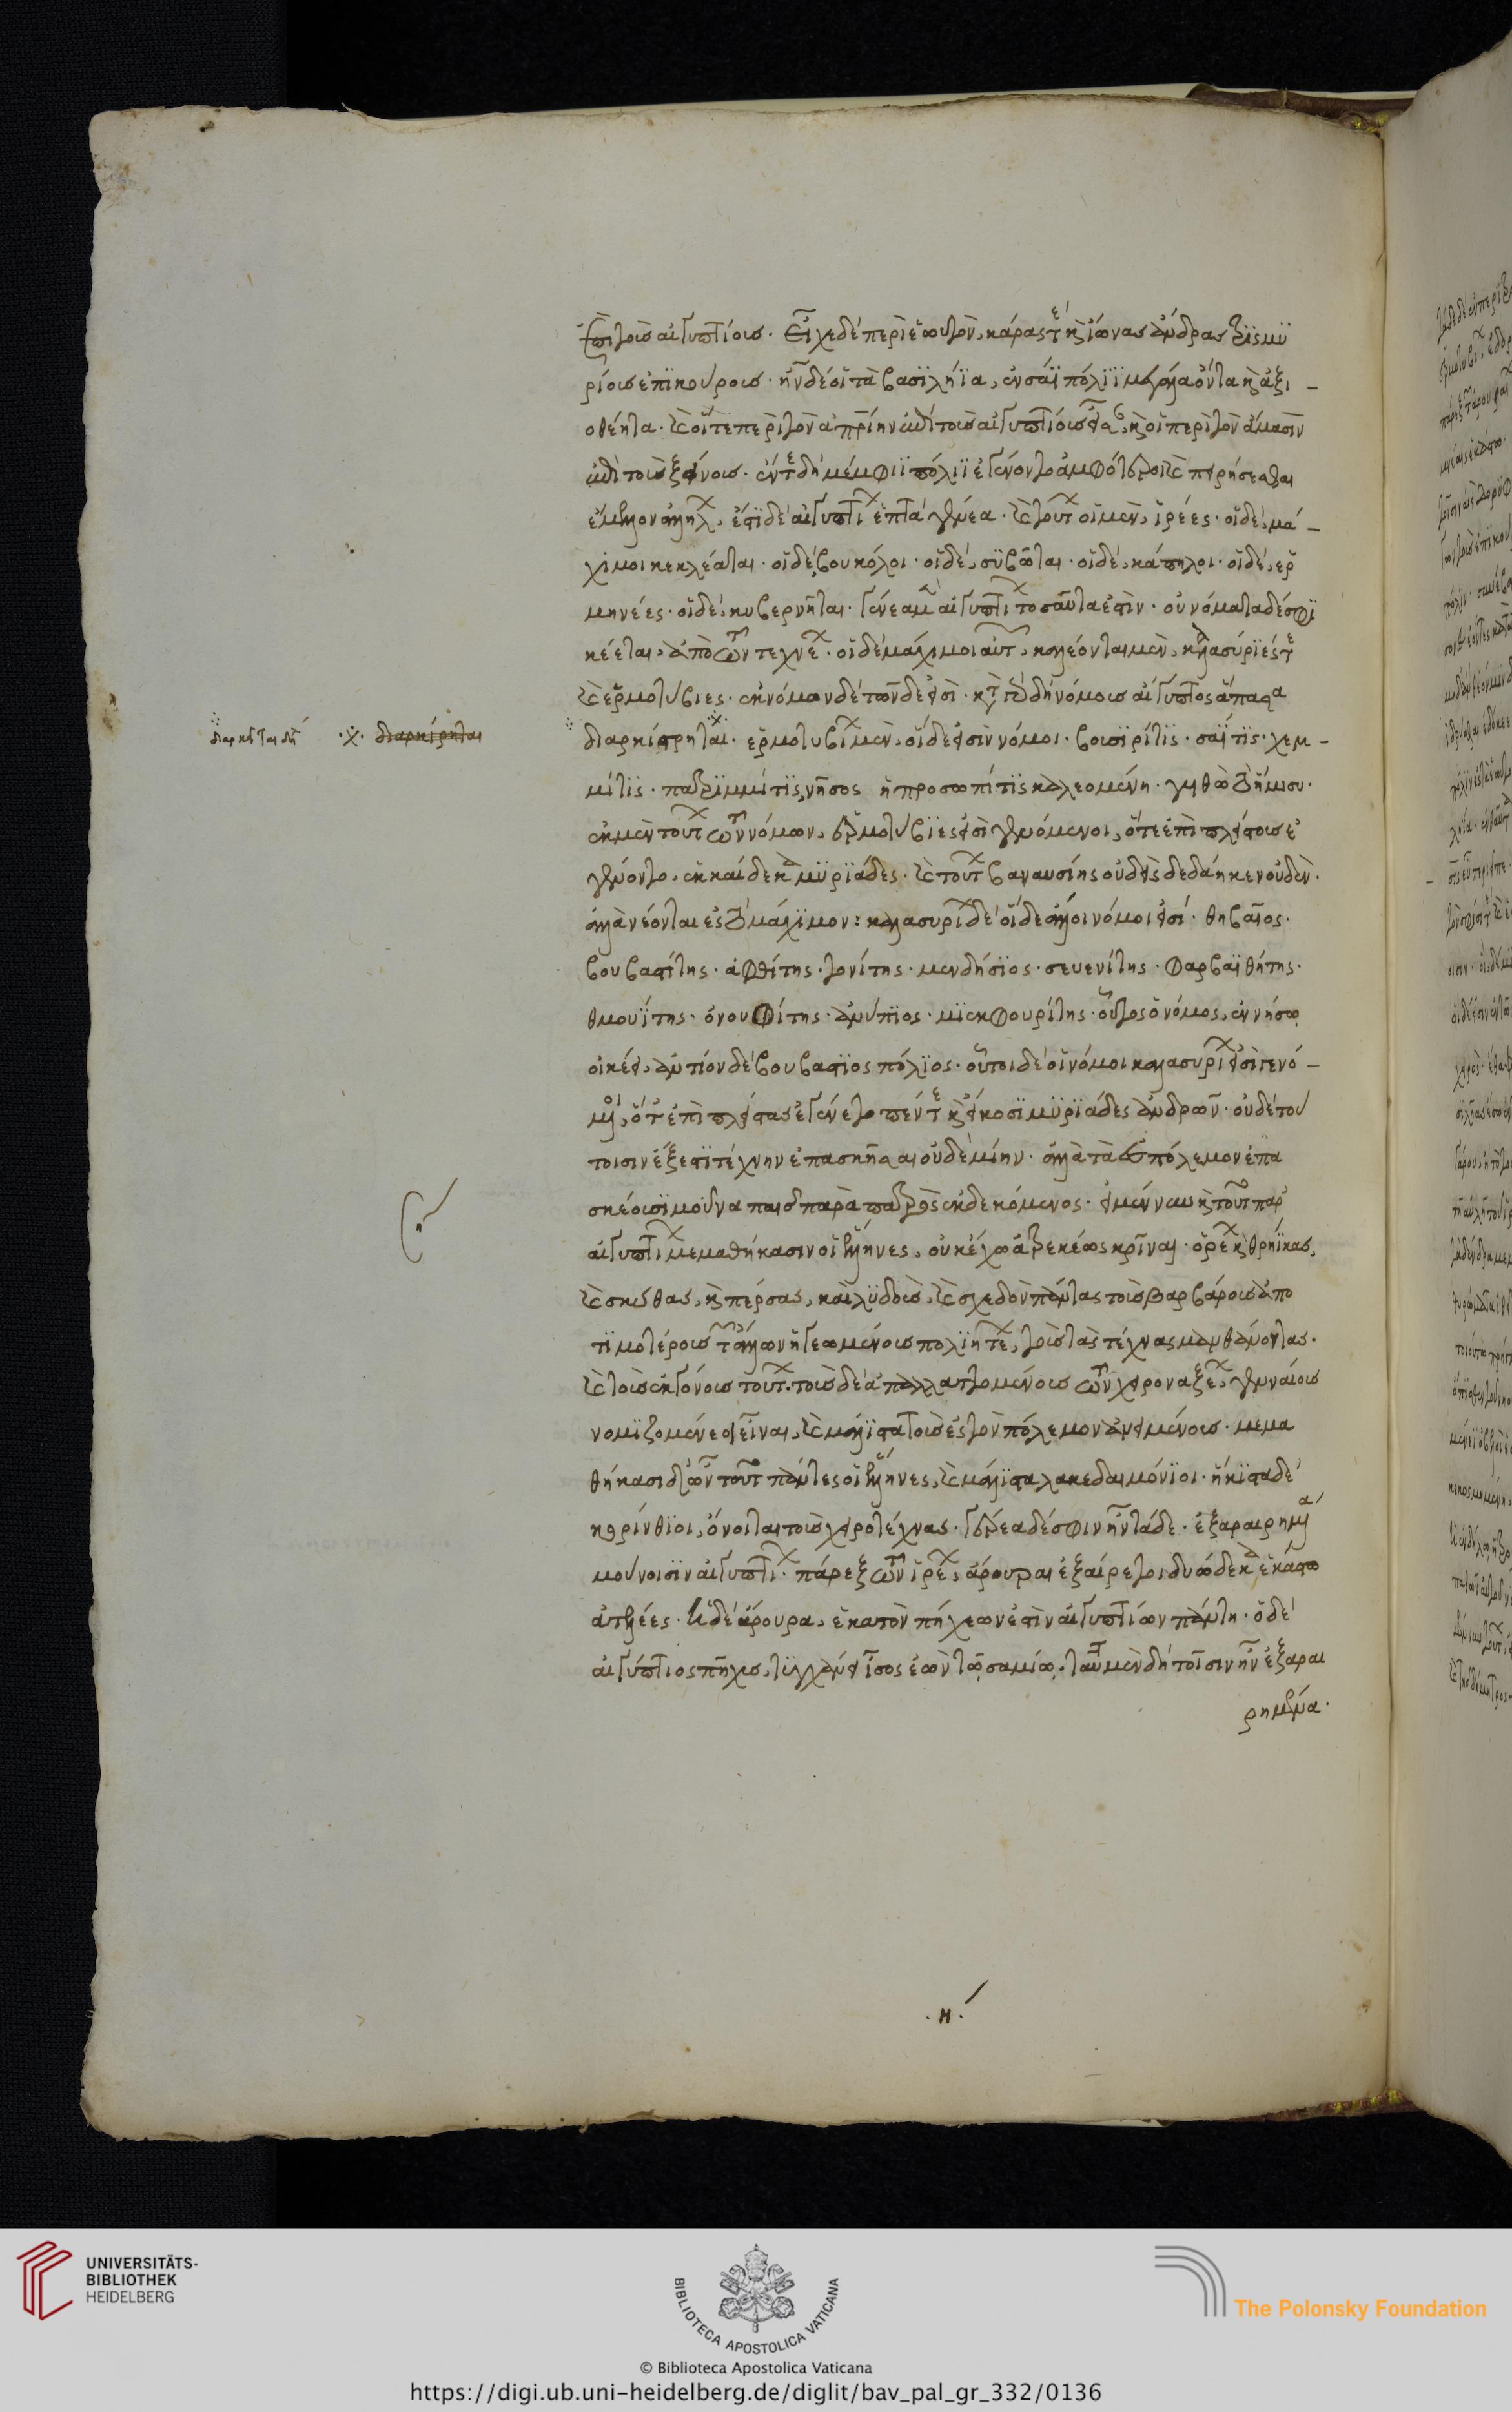 ἐπὶ τοὺς αἰγυπτίους. εἶχε δὲ περὶ ἑωυτὸν, κάράς τε καὶ ἴωνας ἄνδρας τρισμυ
ρίους ἐπικούρους. ἦν δέ οἱ τὰ βασιλήϊα, ἐν σάϊ πόλιϊ μεγάλα ὄντα καὶ ἀξι-
οθέητα. καὶ οἵ τε περὶ τὸν ἀπρίην ἐπὶ τοὺς αἰγυπτίους ἤϊσαν, καὶ οἱ περὶ τὸν ἄμασιν
ἐπὶ τοὺς ξείνους. ἔν τε δὴ μέμφιϊ πόλιϊ ἐγένοντο ἀμφότεροι καὶ πειρήσεσθαι
ἔμελλον ἀλλήλων, ἔστι δὲ αἰγυπτίων ἑπτὰ γένεα. καὶ τούτων οἱ μὲν, ἱρέες. οἱ δὲ, μά-
χιμοι κεκλέαται. οἱ δὲ, βουκόλοι. οἱ δὲ, συβῶται. οἱ δὲ, κάπηλοι. οἱ δὲ, ἑρ
μηνέες. οἱ δὲ, κυβερνῆται. γένεα μὲν αἰγυπτίων τοσαῦτα ἐστὶν. οὐνόματα δέ σφι
κέεται, ἀπὸ τῶν τεχνέων. οἱ δὲ μάχιμοι αὐτῶν, καλέονται μὲν, καλασύριές τε
καὶ ἑρμοτύβιες. ἐκ νόμων δὲ τῶνδε εἰσὶ. κατὰ γὰρ δὴ νόμους αἴγυπτος ἅπασα
διαρκίρηται. ἑρμοτυβίων μὲν, οἵδε εἰσὶν νόμοι. βουσιρίτις. σαΐτις. χεμ-
μίτις. παπριμμίτις, νῆσος ἡ προσωπίτις καλεομένη. γηθὼ τὸ ἥμισυ.
ἐκ μὲν τούτων τῶν νόμων, ἑρμοτύβιες εἰσὶ γενόμενοι, ὅτε ἐπὶ πλείστους ἐ
γένοντο, ἑκκαίδεκα μυριάδες. καὶ τούτων βαναυσίης οὐδεὶς δεδάηκεν οὐδὲν.
ἀλλὰ νέονται ἐς τὸ μάχιμον: καλασυρίων δὲ οἵδε ἄλλοι νόμοι εἰσί. θηβαῖος.
βουβαστίτης. ἀφθίτης. τονίτης. μενδήσιος. σευενίτης. φαρβαϊθήτης.
θμουΐτης. ὀνουφίτης. ἀνύπιος. μιεκφουρίτης. οὗτος ὁ νόμος, ἐν νήσῳ
οἰκέει, ἀντίον δὲ βουβάστιος πόλιος. οὗτοι δὲ οἱ νόμοι καλασυρίων εἰσὶ γενό-
μενοι, ὅτε ἐπὶ πλείστας ἐγένετο πέντε καὶ εἴκοσι μυριάδες ἀνδρῶν. οὐδὲ τού
τοισιν ἔξεστι τέχνην ἐπασκῆσαι οὐδεμίην. ἀλλὰ τὰ ἐς πόλεμον ἐπα
σκέουσι μοῦνα παῖς παρὰ πατρὸς ἐκδεκόμενος. εἰ μέν νυν καὶ τοῦτο παρ'
αἰγυπτίων μεμαθήκασιν οἱ ἕλληνες, οὐκ ἔχω ἀτρεκέως κρῖναι. ὁρέων καὶ θρήϊκας,
καὶ σκύθας, καὶ πέρσας, καὶ λυδοὺς, καὶ σχεδὸν πάντας τοὺς βαρβάρους ἀπο
τιμοτέρους τῶν ἄλλων ἡγεωμένους πολιητέων, τοὺς τὰς τέχνας μανθάνοντας.
καὶ τοὺς ἐκγόνους τούτων. τοὺς δὲ ἀπαλλαττομένους τῶν χειροναξέων, γενναίους
νομιζομένεος εἶναι, καὶ μάλιστα τοὺς ἐς τὸν πόλεμον ἀνειμένους. μεμα
θήκασι δ' ὦν τοῦτο πάντες οἱ ἕλληνες, καὶ μάλιστα λακεδαιμόνιοι. ἥκιστα δὲ
κορίνθιοι, ὄνονται τοὺς χειροτέχνας. γέρεα δέ σφιν ἦν τάδε. ἐξαραιρημένα
μούνοισιν αἰγυπτίων. πάρεξ τῶν ἱρέων, ἄρουραι ἐξαίρετοι δυώδεκα ἑκάστῳ
ἀτελέες. ἡ δὲ ἄρουρα, ἑκατὸν πήχεων ἐστὶν αἰγυπτίων πάντη. ὁ δὲ
αἰγύπτιος πῆχυς, τυγχάνει ἴσος ἐὼν τῷ σαμίῳ. ταῦτα μὲν δὴ τοῖσιν ἦν ἐξαραι
ρημένα.
διαρκίρηται
.η΄.
UNIVERSITÄTS-
BIBLIOTHEK
HEIDELBERG
BIBLIOTECA APOSTOLICA VATICANA
The Polonsky Foundation
© Biblioteca Apostolica Vaticana
https://digi.ub.uni-heidelberg.de/diglit/bav_pal_gr_332/0136